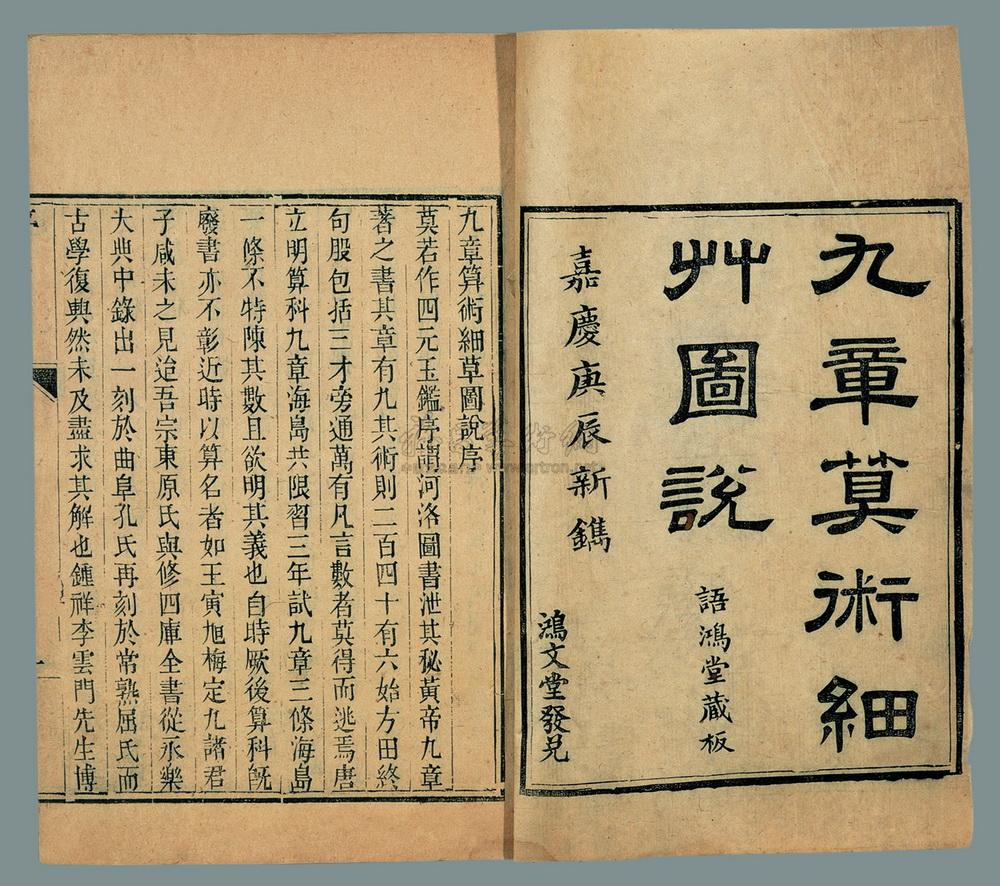 九章算術細
艸圖説
語鴻堂藏板
嘉慶庚辰新鐫
鴻文堂發兌
九章算術細草圖說序
莫若作四元玉鑑序謂河洛圖書泄其秘黃帝九章
著之書其章有九其術則二百四十有六始方田終
句股包括三才旁通萬有凡言數者莫得而逃焉唐
立明算科九章海島共限習三年試九章三條海島
一條不特陳其數且欲明其義也自時厥後算科旣
廢書亦不彰近時以算名者如王寅旭梅定九諸君
子咸未之見迨吾宗東原氏與修四庫全書從永樂
大典中錄出一刻於曲阜孔氏再刻於常熟屈氏而
古學復興然未及盡求其解也鍾祥李雲門先生博